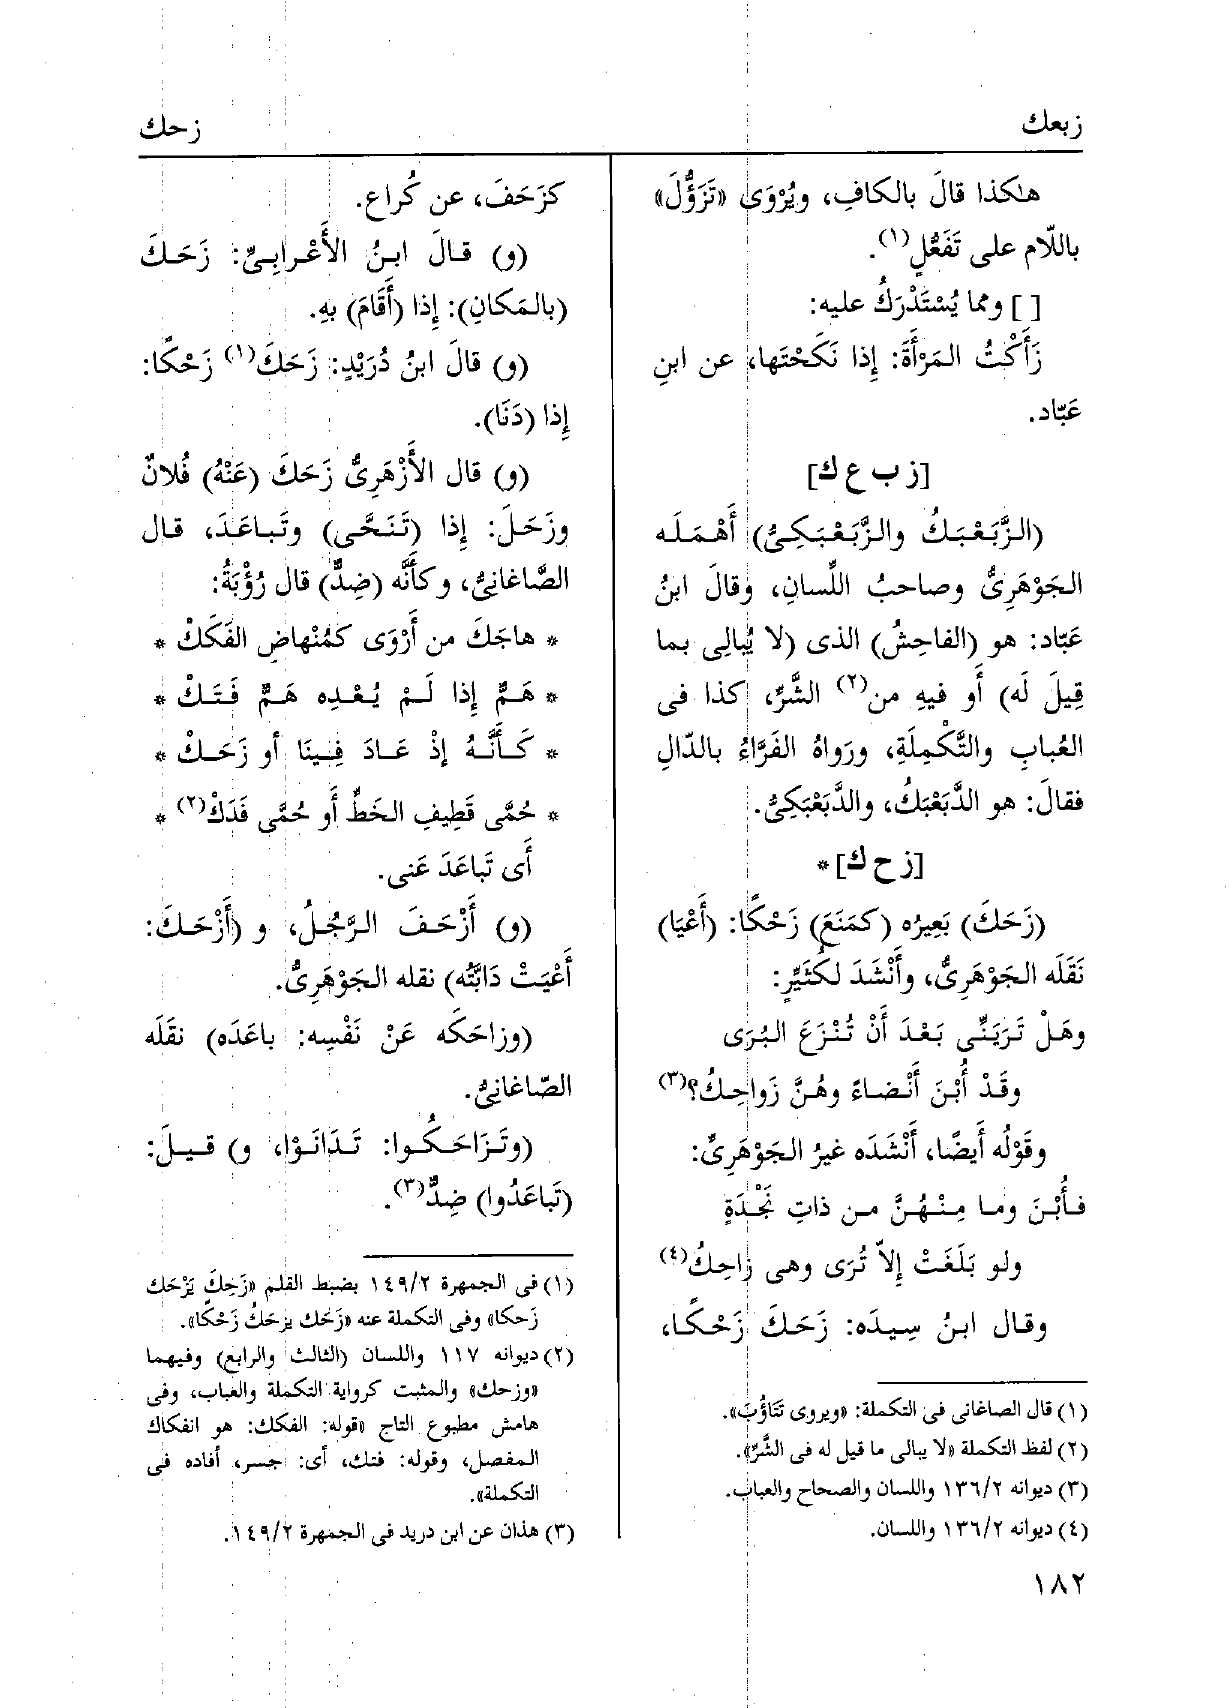 زبعك
زحك
هٰكذا قالَ بالكافِ، ويُرْوَى «تَزَؤُّلَ»
باللّام على تَفَعُّلٍ(١).
[ ] ومما يُسْتَدْرَكُ عليه:
زَأَكْتُ المَرْأَةَ: إِذا نَكَحْتَها، عن ابنِ
عَبّاد.
[ز ب ع ك]
(الزَّبَعْبَكُ والزَّبَعْبَكِىُّ) أَهْمَلَه
الجَوْهَرِىُّ وصاحبُ اللِّسانِ، وقالَ ابنُ
عَبّاد: هو (الفاحِشُ) الذى (لا يُبالِى بما
قِيلَ لَه) أَو فيهِ من(٢) الشَّرِّ، كذا فى
العُبابِ والتَّكْمِلَةِ، ورَواهُ الفَرَّاءُ بالدّالِ
فقالَ: هو الدَّبَعْبَكُ، والدَّبَعْبَكِىُّ.
[ز ح ك]*
(زَحَكَ) بَعِيرُه (كمَنَعَ) زَحْكًا: (أَعْيَا)
نَقَلَه الجَوْهَرِىُّ، وأَنْشَدَ لكُثَيِّرٍ:
وهَلْ تَرَيَنِّى بَعْدَ أَنْ تُنْزَعَ البُرَى
وقَدْ أُبْنَ أَنْضاءً وهُنَّ زَواحِكُ؟(٣)
وقَوْلُه أَيضًا، أَنْشَدَه غيرُ الجَوْهَرِىِّ:
فأُبْنَ وما مِنْهُنَّ من ذاتِ نَجْدَةٍ
ولو بَلَغَتْ إِلاّ تُرَى وهى زاحِكُ(٤)
وقال ابنُ سِيدَه: زَحَكَ زَحْكًا،
(١) قال الصاغانى فى التكملة: «ويروى تَثاؤُبَ».
(٢) لفظ التكملة «لا يبالى ما قيل له فى الشَّرِّ».
(٣) ديوانه ١٣٦/٢ واللسان والصحاح والعباب.
(٤) ديوانه ١٣٦/٢ واللسان.
١٨٢
كزَحَفَ، عن كُراع.
(و) قالَ ابنُ الأَعْرابِىِّ: زَحَكَ
(بالمَكانِ): إِذا (أَقَامَ) بهِ.
(و) قالَ ابنُ دُرَيْدٍ: زَحَكَ(١) زَحْكًا:
إِذا (دَنَا).
(و) قال الأَزْهَرِىُّ زَحَكَ (عَنْهُ) فُلانٌ
وزَحَلَ: إِذا (تَنَحَّى) وتَباعَدَ، قال
الصّاغانِىُّ، وكأَنَّه (ضِدٌّ) قال رُؤْبَةُ:
* هاجَكَ من أَرْوَى كمُنْهاضِ الفَكَكْ *
* هَمٌّ إِذا لَمْ يُعْدِه هَمٌّ فَتَكْ *
* كَأَنَّهُ إِذْ عَادَ فِينَا أو زَحَكْ *
* حُمَّى قَطِيفِ الخَطِّ أَو حُمَّى فَدَكْ(٢) *
أَى تَباعَدَ عَنى.
(و) أَزْحَفَ الرَّجُلُ، و (أَزْحَكَ:
أَعْيَتْ دَابَّتُه) نقله الجَوْهَرِىُّ.
(وزاحَكَه عَنْ نَفْسِه: باعَدَه) نقَلَه
الصّاغانِىُّ.
(وتَزَاحَكُوا: تَدَانَوْا، و) قيلَ:
(تَباعَدُوا) ضِدٌّ(٣).
(١) فى الجمهرة ١٤٩/٢ بضبط القلم «زَحِكَ يَزْحَك
زَحكا» وفى التكملة عنه «زَحَك يزحَكُ زَحْكًا».
(٢) ديوانه ١١٧ واللسان (الثالث والرابع) وفيهما
«وزحك» والمثبت كرواية التكملة والعباب، وفى
هامش مطبوع التاج «قوله: الفكك: هو انفكاك
المفصل، وقوله: فتك، أى: جسر، أفاده فى
التكملة».
(٣) هذان عن ابن دريد فى الجمهرة ١٤٩/٢.